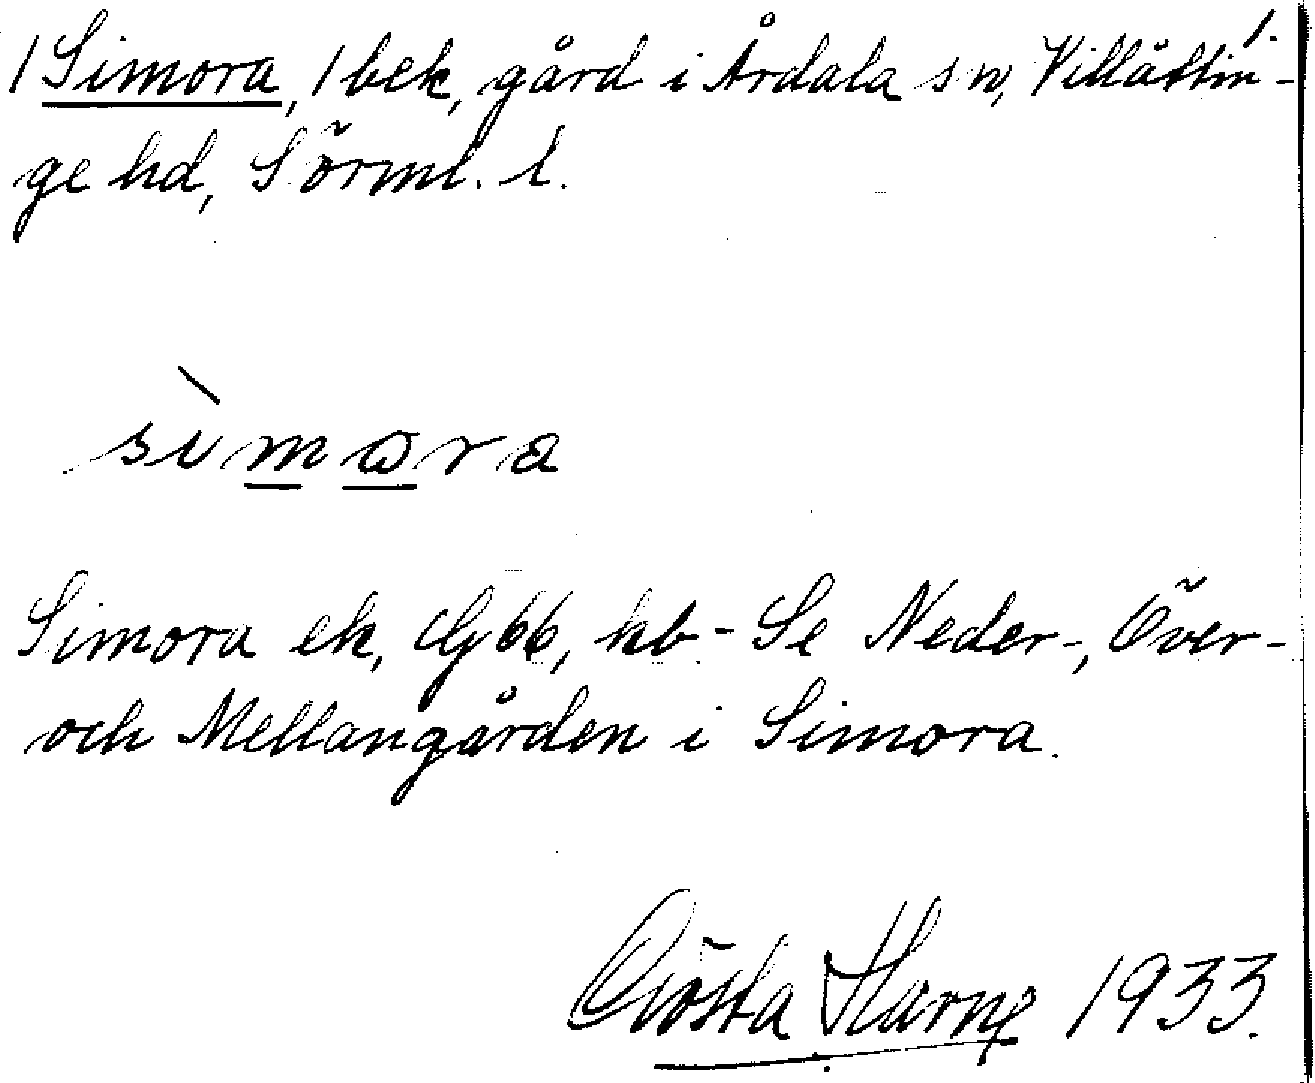 1.
/Simora,/ bek, gård i Årdala sn, Villåttin-
ge hd, Sörml. l.
sìmora
Simora ek, Gj 66, kb - Se Neder-, Över-
och Mellangården i Simora.
Gösta 1933.